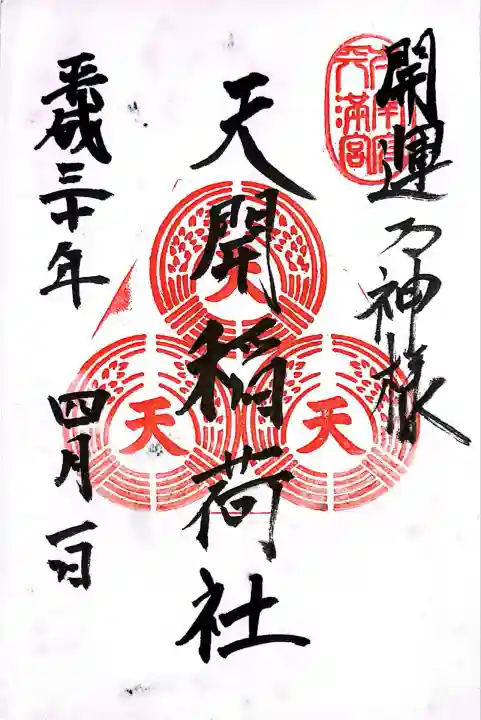 開運の神様
天満宮
天開稲荷社
天
天
天
平成三十年 四月一日